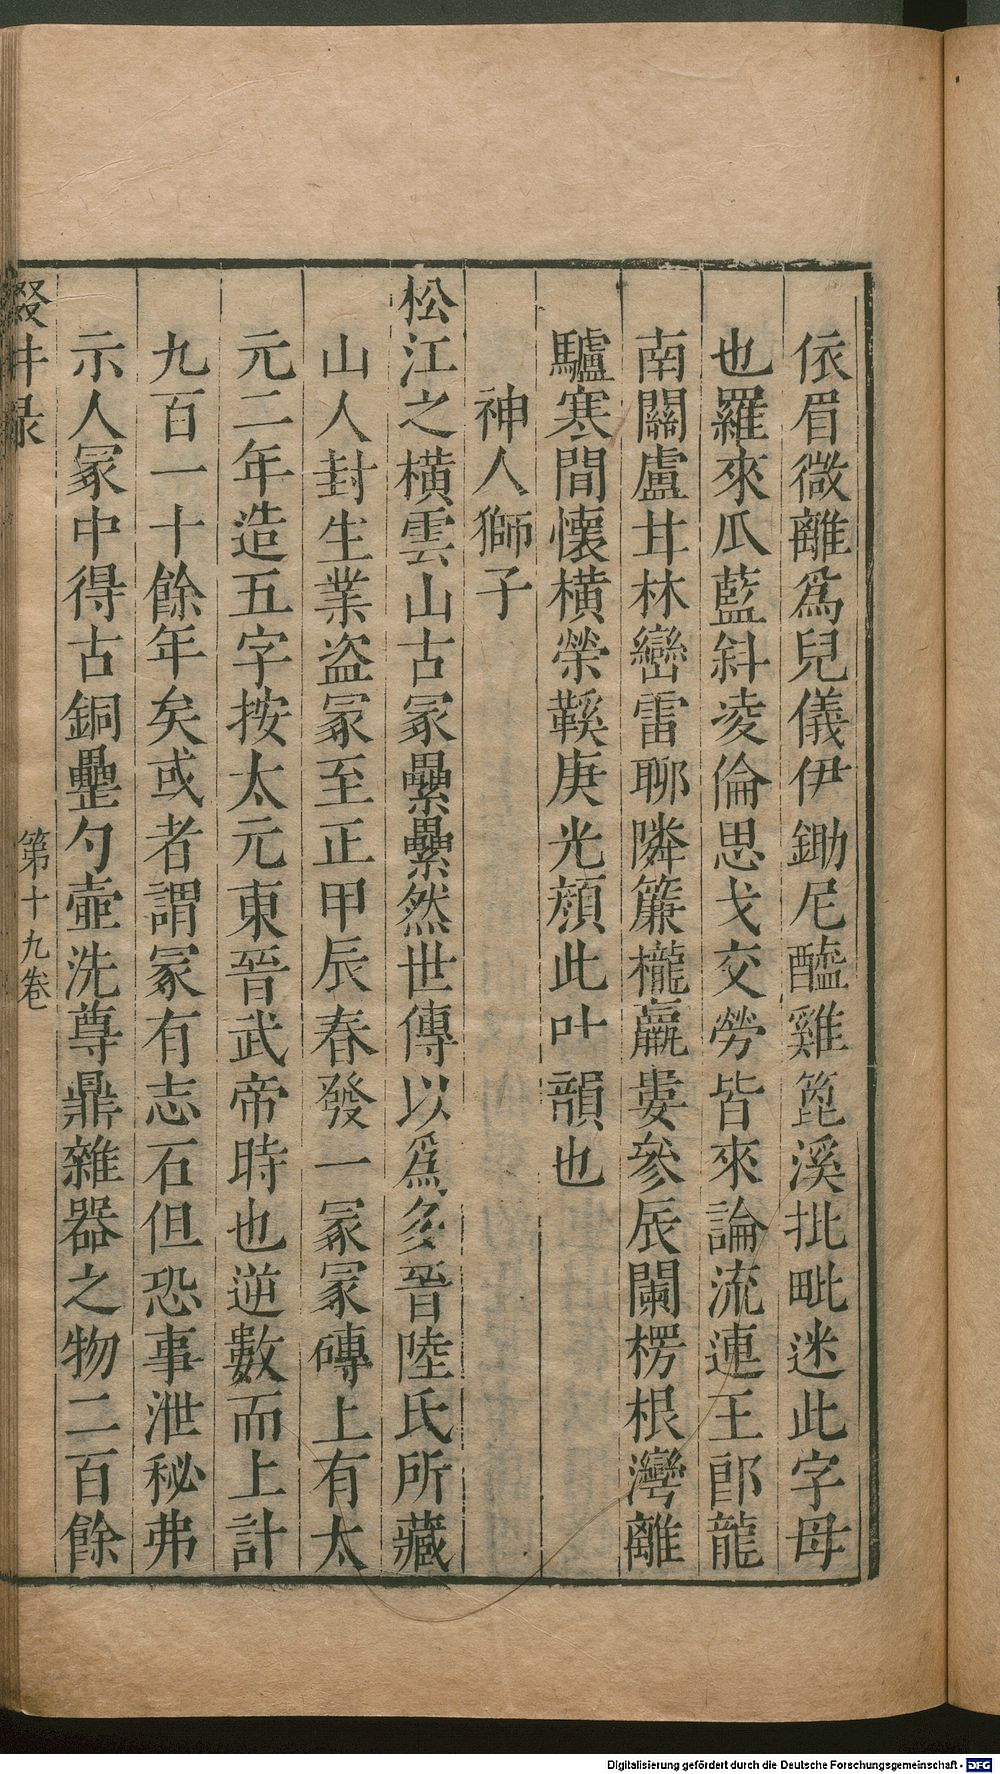 依眉微離爲兒儀伊鋤尼醯雞箆溪批毗迷此字母
也羅來瓜藍斜凌倫思戈交勞皆來論流連王郎龍
南關盧甘林巒雷聊隣簾櫳羸婁參辰闌楞根灣離
驢寒間懷橫榮鞵庚光顏此叶韻也
神人獅子
松江之橫雲山古冢纍纍然世傳以爲多晉陸氏所藏
山人封生業盜冢至正甲辰春發一冢冢磚上有太
元二年造五字按太元東晉武帝時也逆數而上計
九百一十餘年矣或者謂冢有志石但恐事泄秘弗
示人冢中得古銅罍勺壺洗尊鼎雜器之物二百餘
輟畊錄
第十九卷
Digitalisierung gefördert durch die Deutsche Forschungsgemeinschaft - DFG